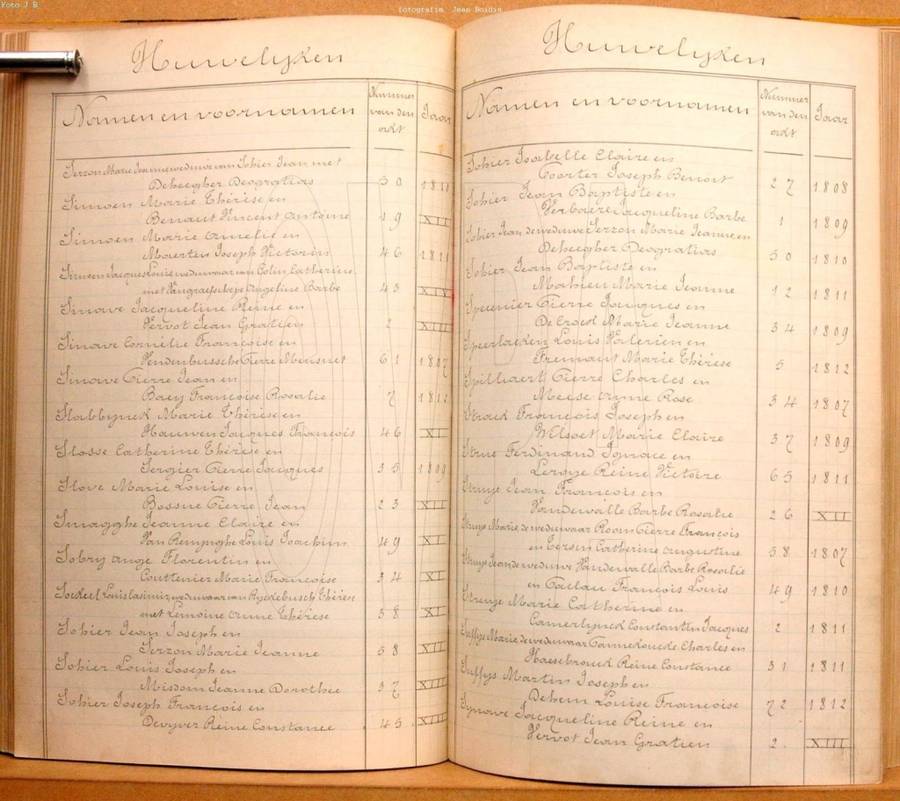 Foto J B
fotografie Jean Boidin
Huwelijken
Namen en voornamen
Nummer van den akt
Jaar
Serzon Marie Jeanne weduwe van Sohier Jean met
Deheegher Deogratias 50 1811
Simoen Marie Thérèse en
Benaut Vincent Antoine 49 XII
Simoen Marie Amelie en
Maerten Joseph Victorin 46 1811
Simoen Jacques Louis weduwaar van Colin Catherine
met Vangraefschepe Angeline Barbe 43 XIV
Sinave Jacqueline Reine en
Vervot Jean Gratien 2 XIII
Sinave Cornélie Françoise en
Vandenbussche Pierre 61 1807
Sinave Pierre Jean en
Baey Françoise Rosalie 7 1812
Slabbynck Marie Thérèse en
Hauwen Jacques François 46 XI
Slosse Catherine Thérèse en
Sergier Pierre Jacques 35 1809
Slove Marie Louise en
Bossue Pierre Jean 23 XII
Smagghe Jeanne Claire en
Van Rempoghe Louis Joachim 49 XI
Sobry Ange Florentin en
Couttenier Marie Françoise 34 XI
Soekeel Louis Casimir weduwaar van Ryckebusch Thérèse
met Lemoine Anne Thérèse 58 XI
Sohier Jean Joseph en
Serzon Marie Jeanne 58 XII
Sohier Louis Joseph en
Misdom Jeanne Dorothee 37 XIII
Sohier Joseph François en
Devyver Reine Constance 45 XIII
Huwelijken
Namen en voornamen
Nummer van den akt
Jaar
Sohier Isabelle Claire en
Coorter Joseph Benoit 27 1808
Sohier Jean Baptiste en
Verbaere Jacqueline Barbe 1 1809
Sohier Jean de weduwe Serzon Marie Jeanne en
Deheegher Deogratias 50 1810
Sohier Jean Baptiste en
Mahieu Marie Jeanne 12 1811
Spesenier Pierre Jacques en
De Croek Marie Jeanne 34 1809
Speerlaecken Louis Valerien en
Fremaut Marie Thérèse 5 1812
Spilliaert Pierre Charles en
Meese Anne Rose 34 1807
Strack François Joseph en
Wilsoet Marie Claire 37 1809
Strue Ferdinand Ignace en
Leroye Reine Victoire 65 1811
Struye Jean François en
Vandewalle Barbe Rosalie 26 XII
Struys Marie de weduwaar Room Pierre François
en Tersen Catherine Augustine 58 1807
Struys Jean de weduwe Vandewalle Barbe Rosalie
en Louis 49 1810
Struye Marie Catherine en
Camerlynck Constantin Jacques 2 1811
Suffys Marie de weduwaar Pannekoucke Charles en
Haesebrouck Reine Constance 31 1811
Suffys Martin Joseph en
Dehem Louise Françoise 72 1812
Synave Jacqueline Reine en
Vervot Jean Gratien 2. XIII